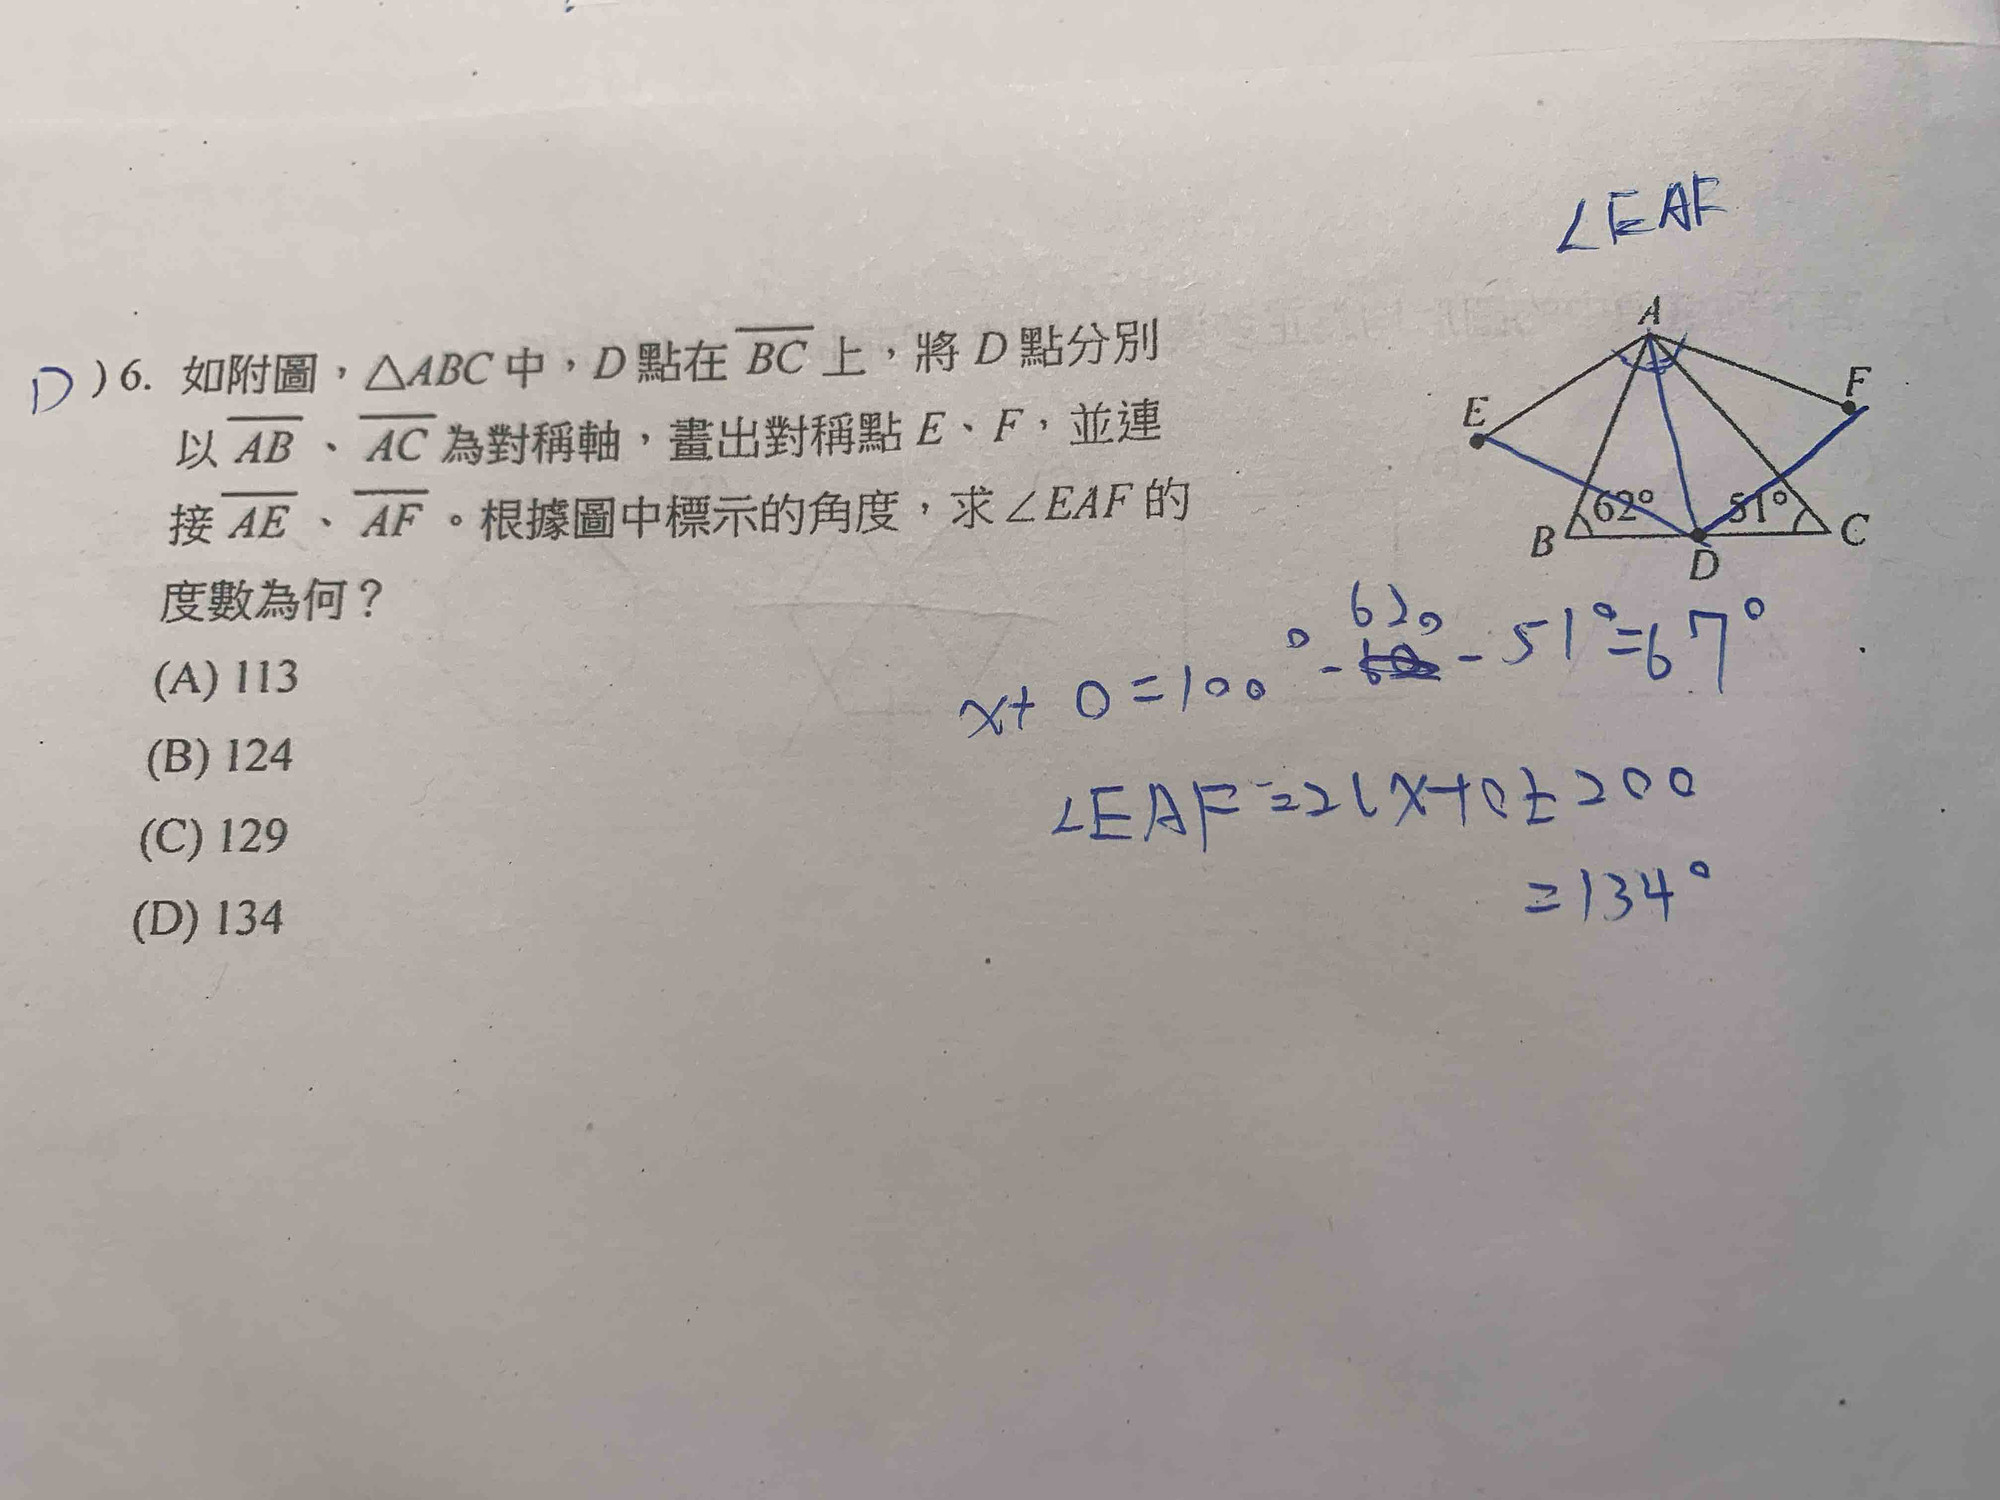 ∠EAF
D ) 6. 如附圖，△ABC 中，D 點在 BC 上，將 D 點分別
以 AB 、 AC 為對稱軸，畫出對稱點 E、F，並連
接 AE 、 AF 。根據圖中標示的角度，求∠EAF 的
度數為何？
(A) 113
(B) 124
(C) 129
(D) 134
A
E
F
B
62°
51°
C
D
x+0=100°-62°-51°=67°
∠EAF=2(x+0)=200
=134°